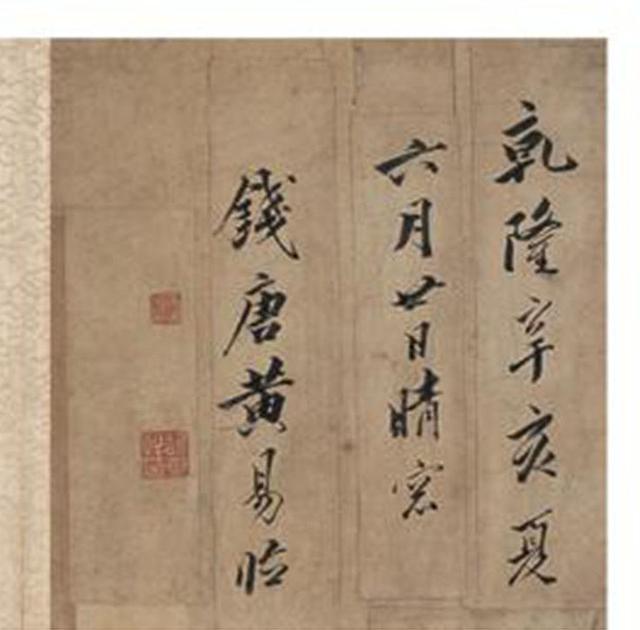 乾隆辛亥夏
六月廿日晴窓
錢唐黃易臨